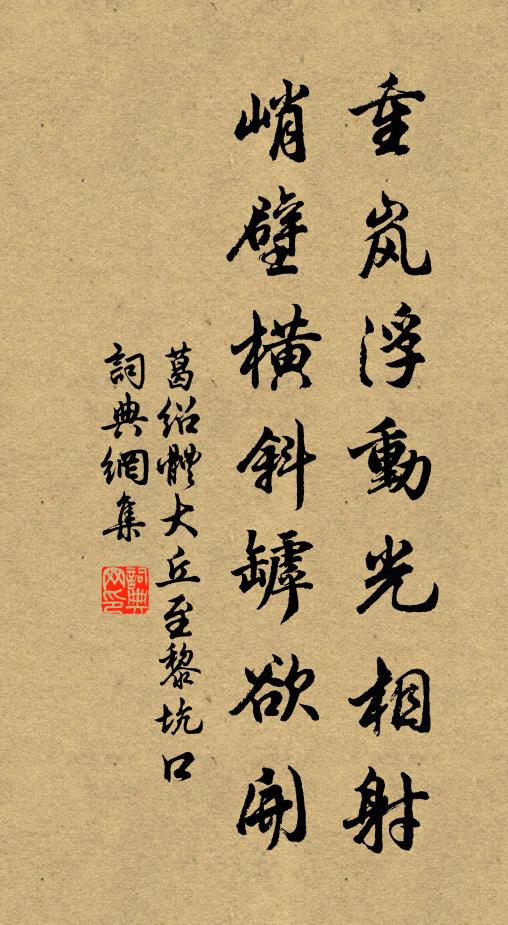 重岚浮動光相射
峭壁橫斜罅欲開
葛绍體大丘至黎坑口
詞典網集
詞典網印